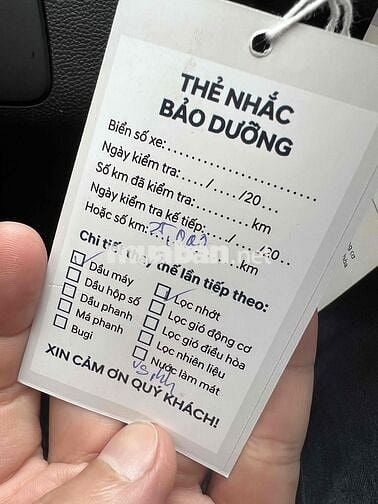 THẺ NHẮC
BẢO DƯỠNG
Biển số xe:..............................
Ngày kiểm tra:....../....../20....
Số km đã kiểm tra:............ km
Ngày kiểm tra kế tiếp:..../..../20...
Hoặc số km:............ km
Chi tiết thay thế lần tiếp theo:
Dầu máy
Dầu hộp số
Dầu phanh
Má phanh
Bugi
Lọc nhớt
Lọc gió động cơ
Lọc gió điều hòa
Lọc nhiên liệu
Nước làm mát
XIN CẢM ƠN QUÝ KHÁCH!